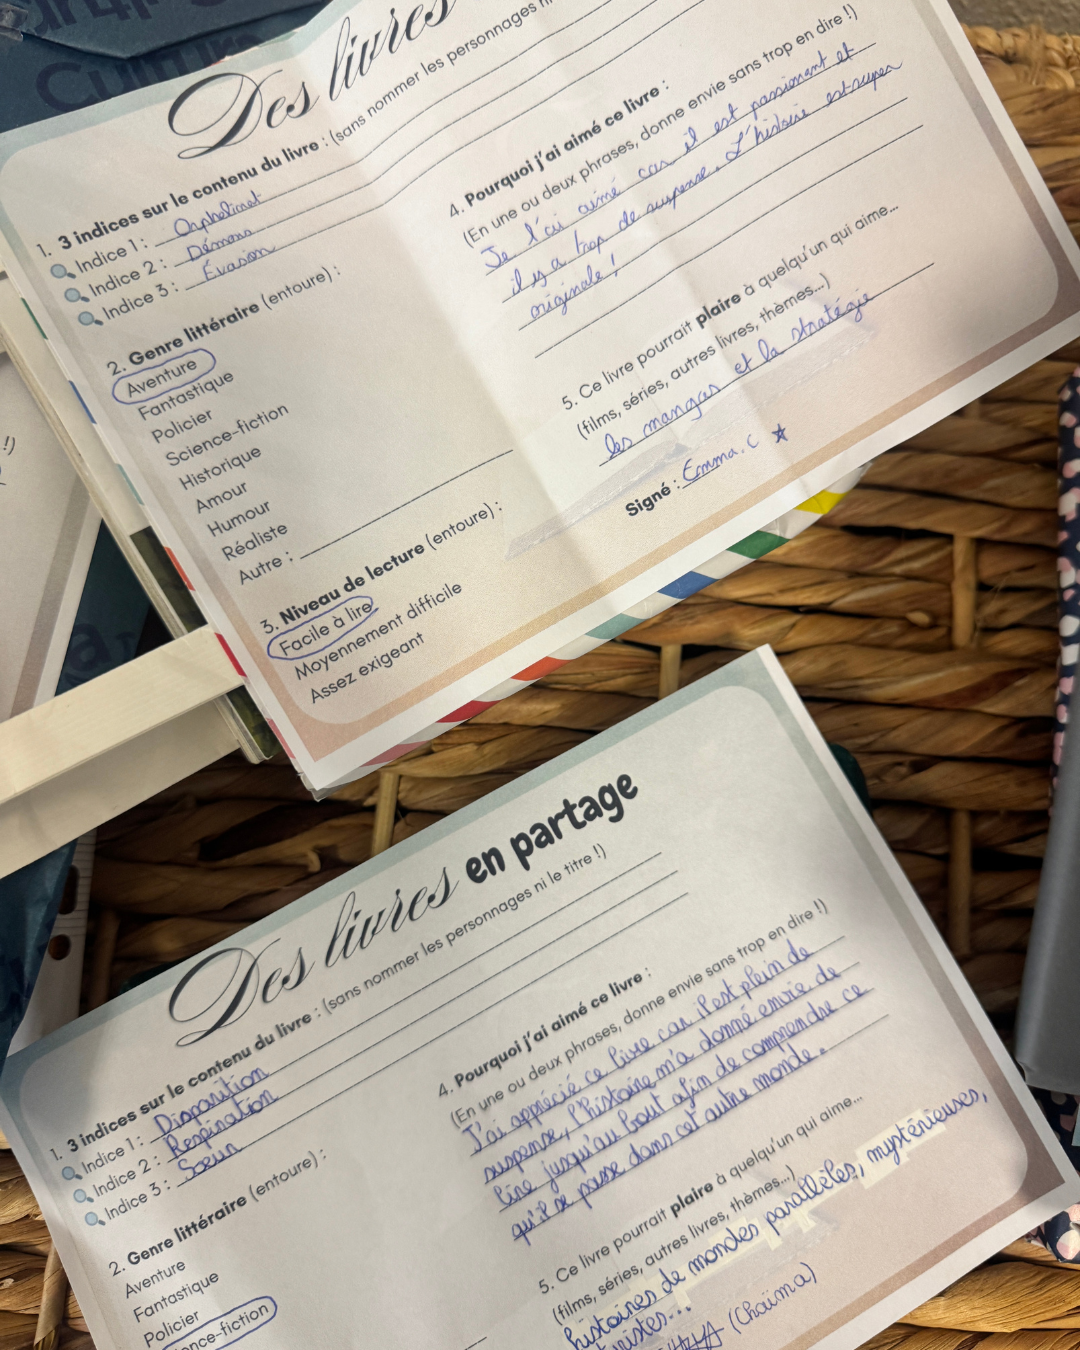 Cultura
Des livres
1. 3 indices sur le contenu du livre : (sans nommer les personnages ni
Indice 1 : Orphelinat
Indice 2 : Démons
Indice 3 : Évasion
2. Genre littéraire (entoure) :
Aventure
Fantastique
Policier
Science-fiction
Historique
Amour
Humour
Réaliste
Autre :
3. Niveau de lecture (entoure) :
Facile à lire
Moyennement difficile
Assez exigeant
4. Pourquoi j'ai aimé ce livre :
(En une ou deux phrases, donne envie sans trop en dire !)
Je l'ai aimé car il est passionant et
il y a trop de suspense. L'histoire est super
originale !
5. Ce livre pourrait plaire à quelqu'un qui aime...
(films, séries, autres livres, thèmes...)
les mangas et la stratégie
Signé : Emma. C
!)
Des livres en partage
1. 3 indices sur le contenu du livre : (sans nommer les personnages ni le titre !)
Indice 1 : Disparition
Indice 2 : Respiration
Indice 3 : Soeur
2. Genre littéraire (entoure) :
Aventure
Fantastique
Policier
nce-fiction
4. Pourquoi j'ai aimé ce livre :
(En une ou deux phrases, donne envie sans trop en dire !)
J'ai apprécié ce livre car il est plein de
suspense, l'histoire m'a donné envie de
lire jusqu'au bout afin de comprendre ce
qu'il se passe dans cet autre monde.
5. Ce livre pourrait plaire à quelqu'un qui aime...
(films, séries, autres livres, thèmes...)
histoires de mondes parallèles, mystérieuses,
(Chaïma)